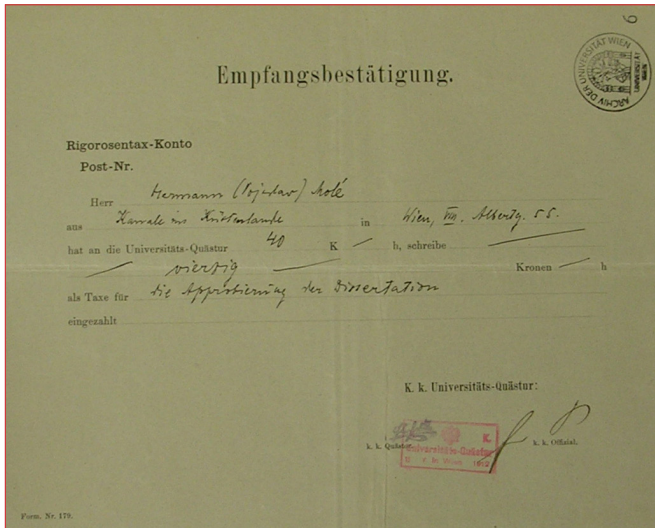 6
ARCHIV DER UNIVERSITÄT WIEN
UNIVERSITÄT WIEN
Empfangsbestätigung.
Rigorosentax-Konto
Post-Nr.
Herr Hermann (Vojeslav) Molé
aus Kanale im Küstenlande in Wien, VIII. Albertg. 55.
hat an die Universitäts-Quästur 40 K / h, schreibe
viertzig Kronen h
als Taxe für die Approbierung der Dissertation
eingezahlt
K. k. Universitäts-Quästur:
k. k. Quästor. K. k. k. Official.
Universitäts-Quästur
in Wien 1912
Form. Nr. 179.